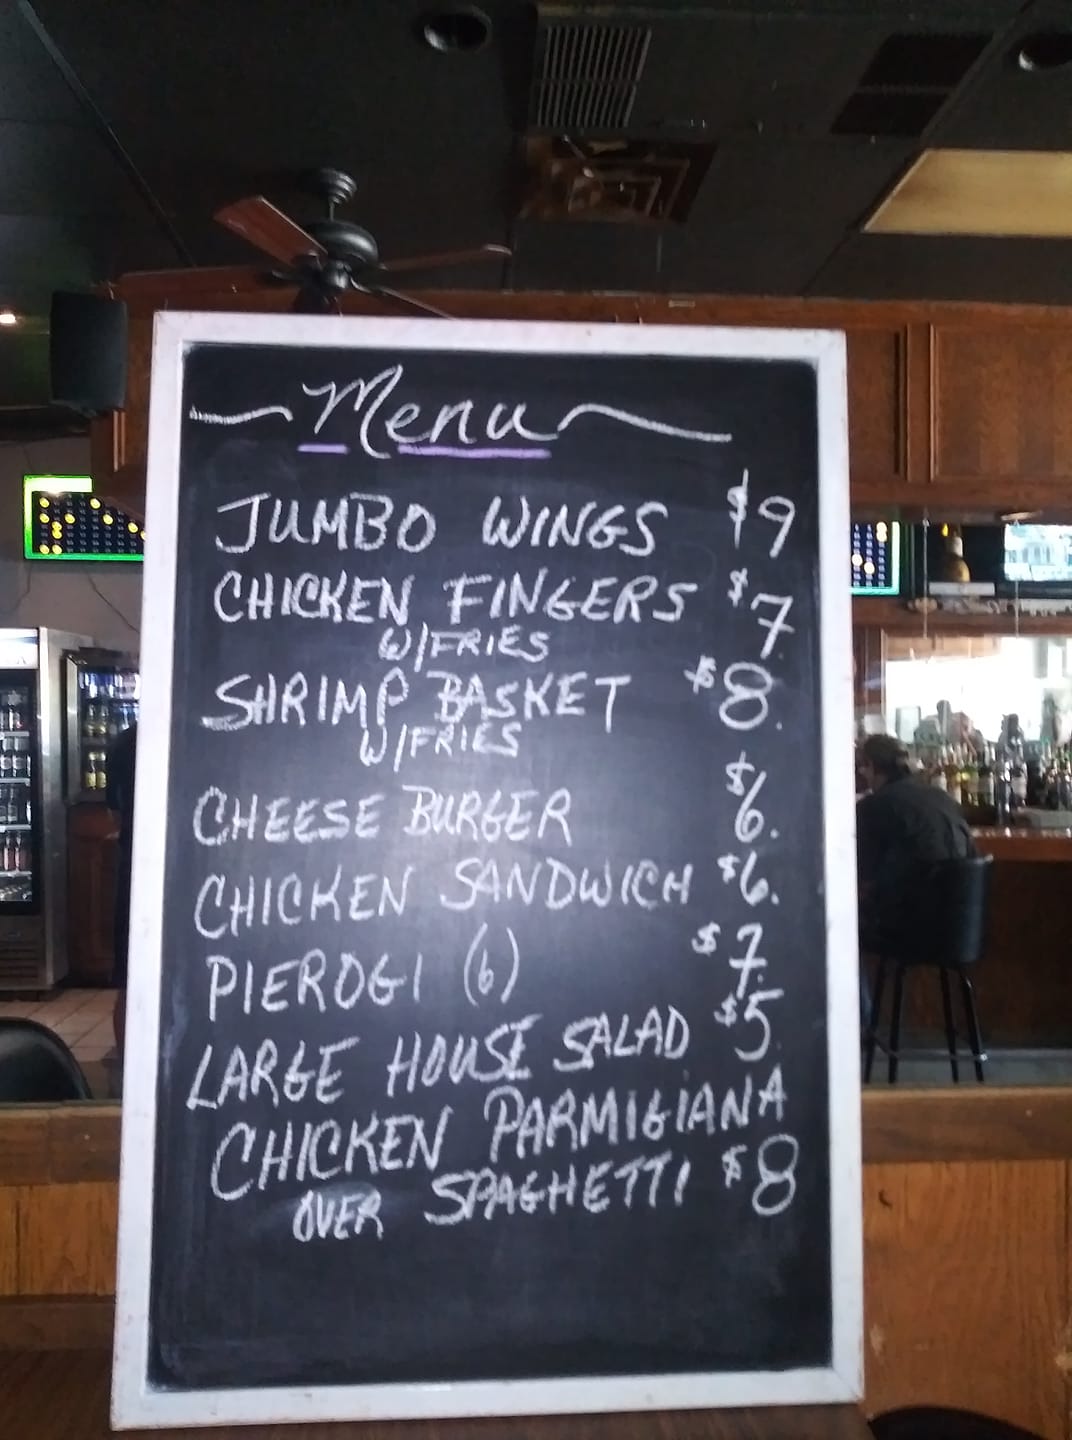 Menu
JUMBO WINGS $9
CHICKEN FINGERS $7
W/FRIES
SHRIMP BASKET $8.
W/FRIES
CHEESE BURGER $6.
CHICKEN SANDWICH $6.
PIEROGI (6) $7.
LARGE HOUSE SALAD $5
CHICKEN PARMIGIANA
OVER SPAGHETTI $8